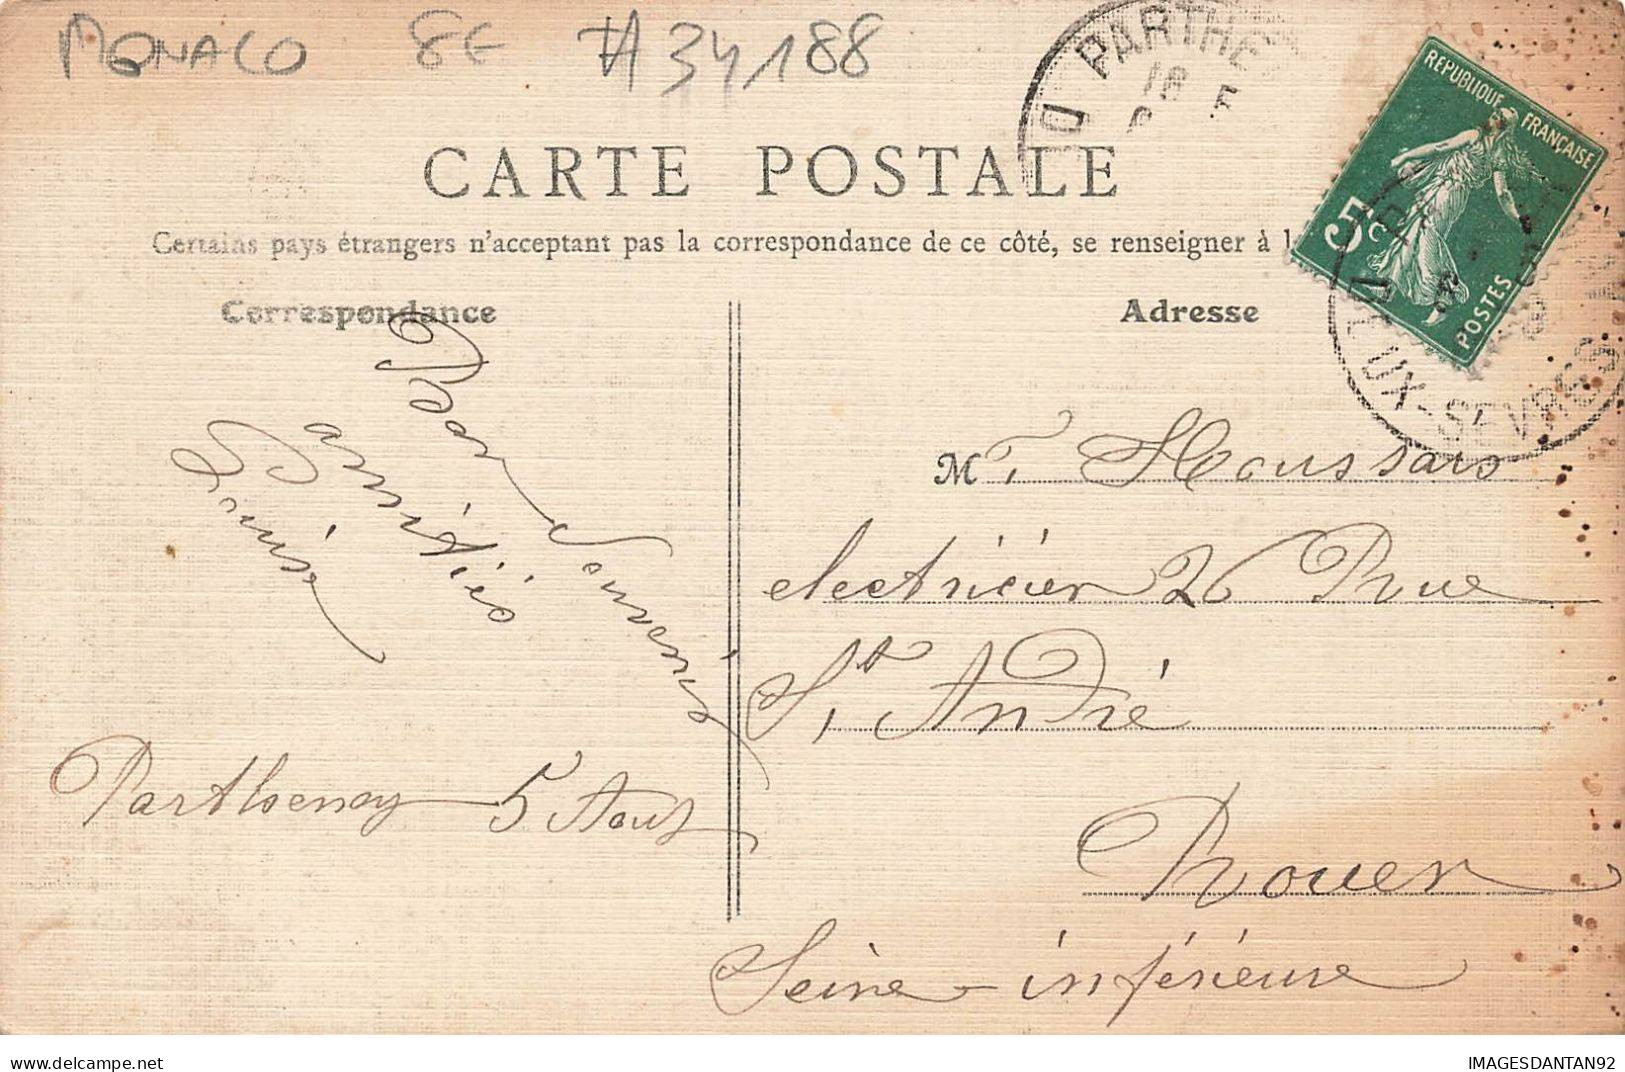 MONACO 8E #34188
PARTHE
18
CARTE POSTALE
Certains pays étrangers n'acceptant pas la correspondance de ce côté, se renseigner à l
RÉPUBLIQUE FRANÇAISE
5c
POSTES
UX-SEVRES
Correspondance
Bon Souvenir
amitiés
Louise
Parthenay 5 Aout
Adresse
M r Houssais
electricien 26 Rue
St André
Rouen
Seine-inférieure
IMAGESDANTAN92
delcampe.net